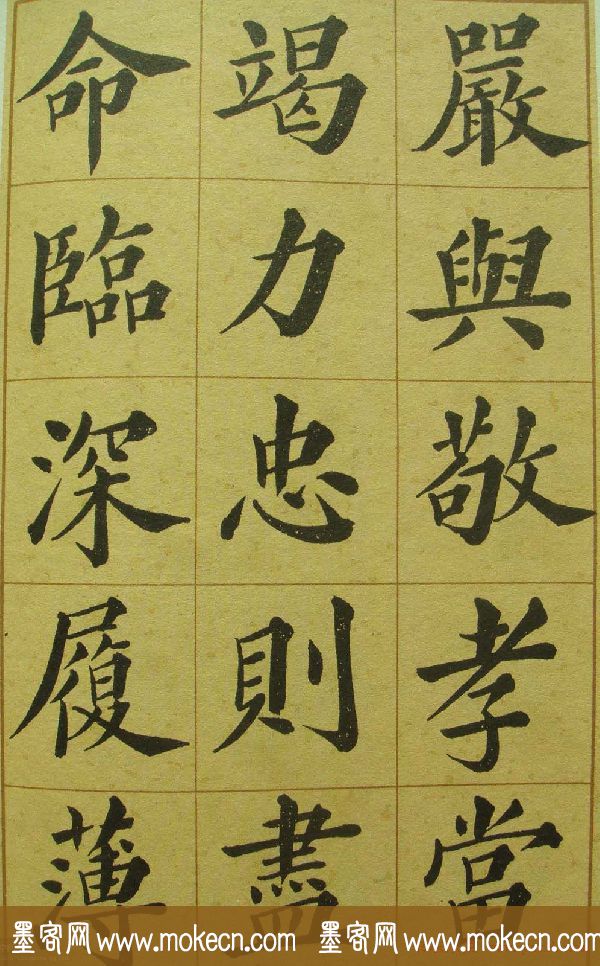 嚴與敬孝當
竭力忠則盡
命臨深履薄
墨客网 www.mokecn.com 墨客网 www.mokecn.com